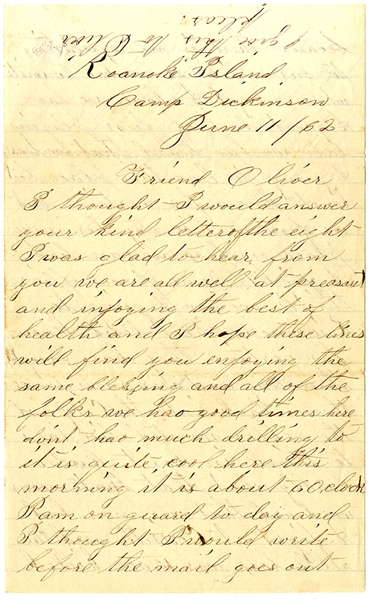 give this to Oliver
Roanoke Island
Camp Dickinson
June 11/62
Friend Oliver
I thought I would answer
your kind letter of the eight
I was glad to hear from
you we are all well at preasant
and injoying the best of
health and I hope these lines
will find you enjoying the
same blessing and all of the
folks we hao good times here
dont hao much drilling to
it is quite cool here this
morning it is about 6 Oclock
I am on guard to day and
I thought I would write
before the mail goes out